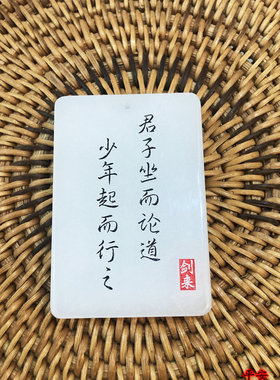 君子坐而论道
少年起而行之
剑来